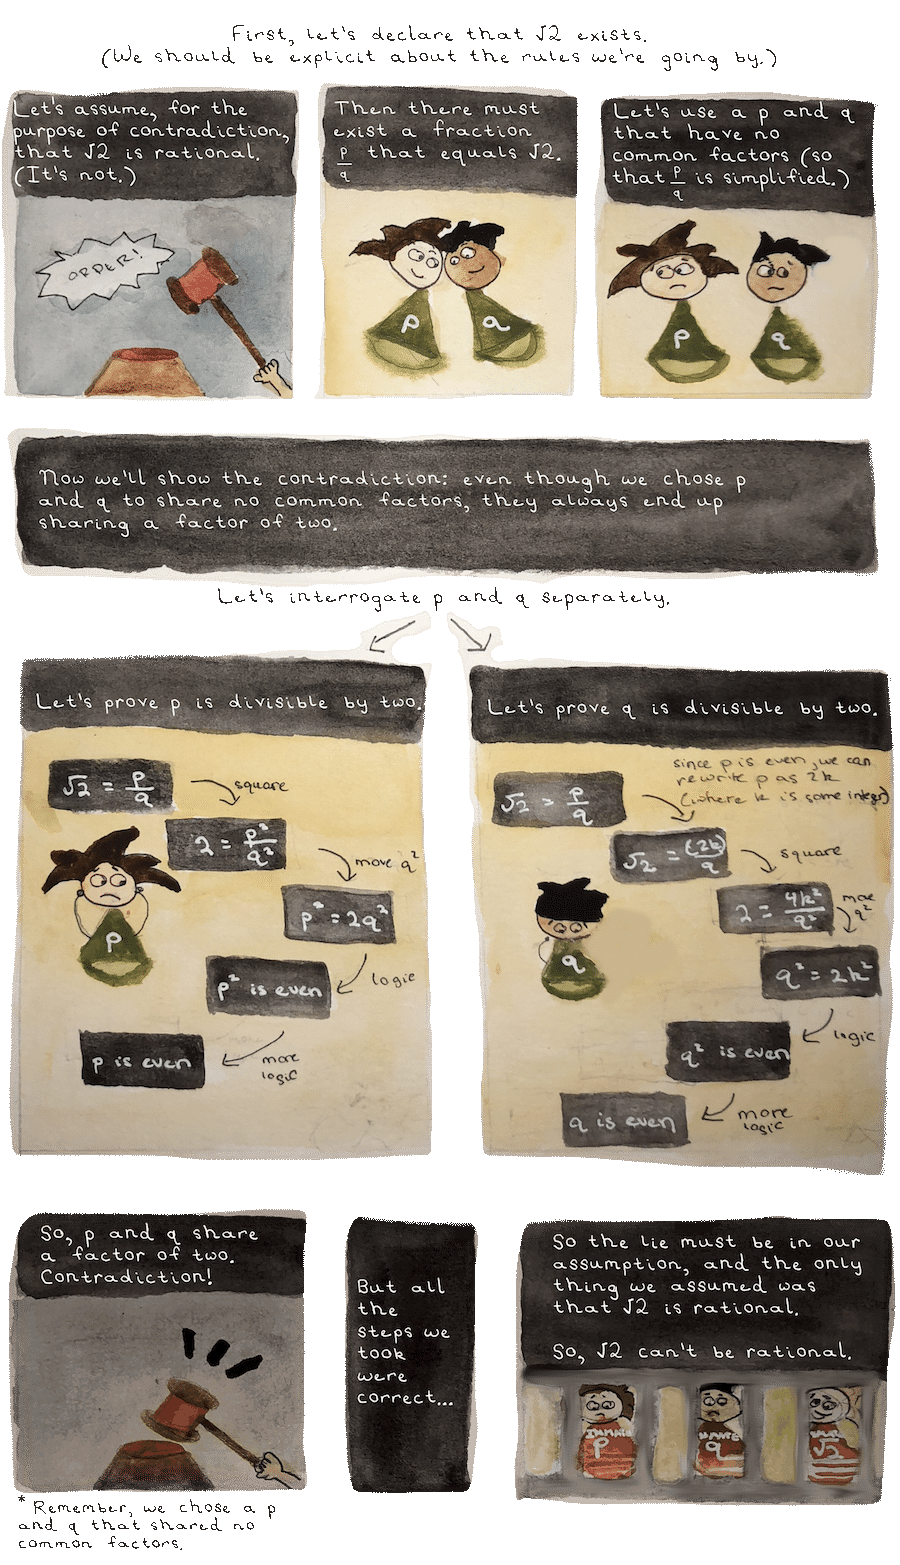 First, let's declare that √2 exists.
(We should be explicit about the rules we're going by.)
Let's assume, for the
purpose of contradiction,
that √2 is rational.
(It's not.)
ORDER!
Then there must
exist a fraction
p/q that equals √2.
p
q
Let's use a p and q
that have no
common factors (so
that p/q is simplified.)
p
q
Now we'll show the contradiction: even though we chose p
and q to share no common factors, they always end up
sharing a factor of two.
Let's interrogate p and q separately.
Let's prove p is divisible by two.
√2 = p/q
square
2 = p²/q²
move q²
p² = 2q²
logic
p² is even
more
logic
p is even
p
Let's prove q is divisible by two.
since p is even, we can
rewrite p as 2k
(where k is some integer)
√2 = p/q
√2 = (2k)/q
square
2 = 4k²/q²
move
q²
q² = 2k²
logic
q² is even
more
logic
q is even
q
So, p and q share
a factor of two.
Contradiction!
* Remember, we chose a p
and q that shared no
common factors.
But all
the
steps we
took
were
correct...
So the lie must be in our
assumption, and the only
thing we assumed was
that √2 is rational.
So, √2 can't be rational.
INMATE
p
INMATE
q
√2